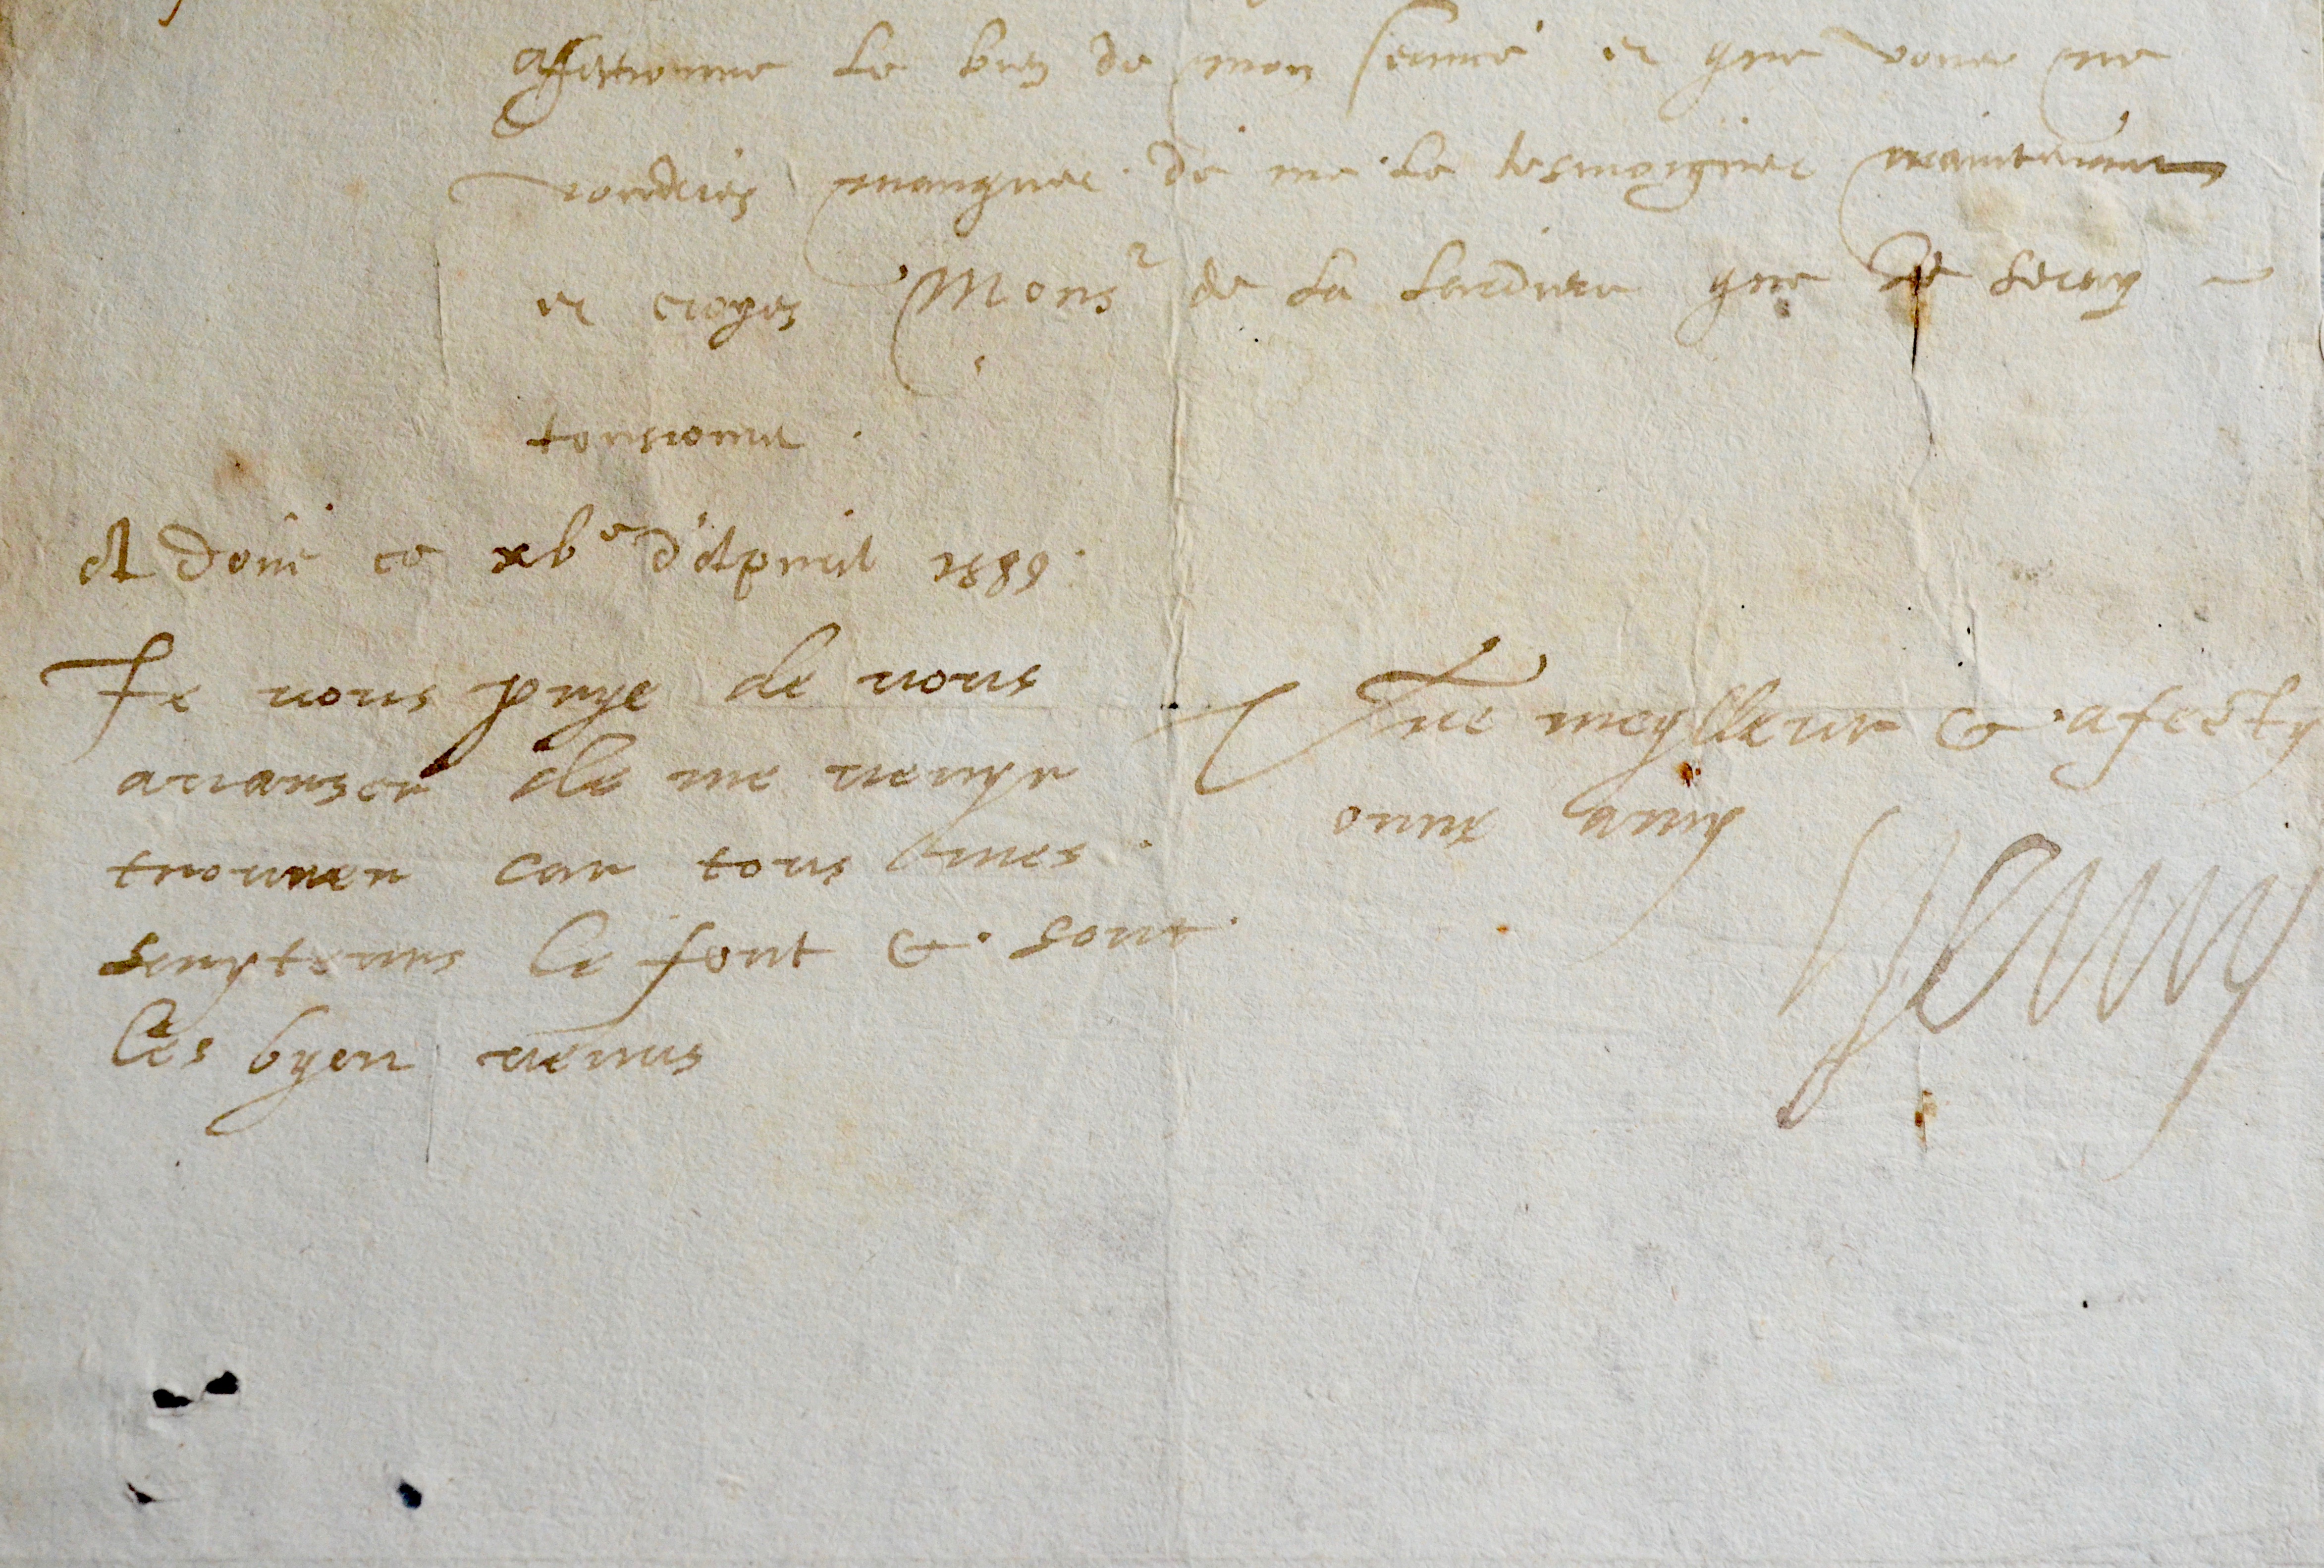 affectionne le bien de mon service et que vous ne
voudries manquer de me le tesmoigner maintenant
et croyes Mons^r de la que je seray
tousiours
A Doué ce xv^e d'Apvril 1589.
Je vous prye de vous
avanser de me venyr
trouver car tous mes
servyteurs le font & sont
les byen venus
Vre meylleur & afecty
onne amy
Henry